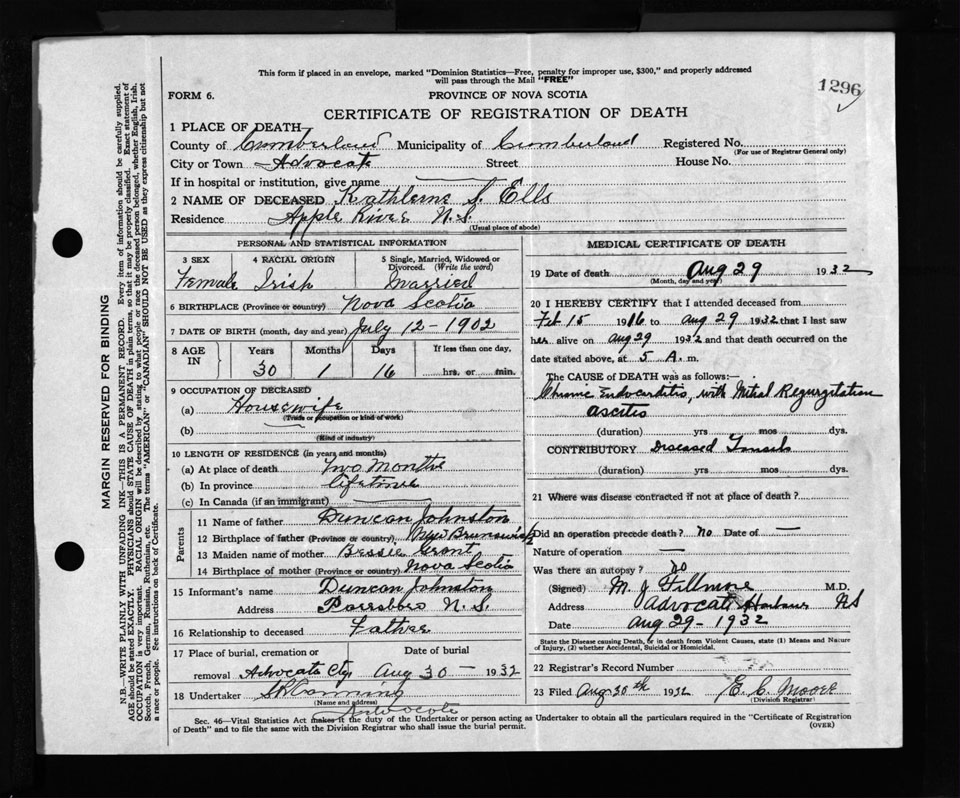 This form if placed in an envelope, marked "Dominion Statistics—Free, penalty for improper use, $300," and properly addressed
will pass through the Mail "FREE"
1296
FORM 6.
PROVINCE OF NOVA SCOTIA
CERTIFICATE OF REGISTRATION OF DEATH
1 PLACE OF DEATH
County of Cumberland Municipality of Cumberland Registered No.
(For use of Registrar General only)
City or Town Advocate Street House No.
If in hospital or institution, give name
2 NAME OF DECEASED Kathlene S. Ells
Residence Apple River N.S.
(Usual place of abode)
PERSONAL AND STATISTICAL INFORMATION
3 SEX 4 RACIAL ORIGIN 5 Single, Married, Widowed or
Divorced. (Write the word)
Female Irish Married
6 BIRTHPLACE (Province or country) Nova Scotia
7 DATE OF BIRTH (month, day and year) July 12 - 1902
8 AGE
IN
Years Months Days If less than one day,
30 1 16 hrs. or min.
9 OCCUPATION OF DECEASED
(a) Housewife
(Trade or occupation or kind of work)
(b)
(Kind of industry)
10 LENGTH OF RESIDENCE (in years and months)
(a) At place of death Two Months
(b) In province lifetime
(c) In Canada (if an immigrant)
Parents
11 Name of father Duncan Johnston
12 Birthplace of father (Province or country) New Brunswick
13 Maiden name of mother Bessie Grant
14 Birthplace of mother (Province or country) Nova Scotia
15 Informant's name Duncan Johnston
Address Parrsboro N.S.
16 Relationship to deceased Father
17 Place of burial, cremation or Date of burial
removal Advocate Cty Aug 30 - 1932
18 Undertaker
(Name and address)
Advocate
MEDICAL CERTIFICATE OF DEATH
19 Date of death Aug 29 1932
(Month, day and year)
20 I HEREBY CERTIFY that I attended deceased from
Feb 15 1916 to Aug 29 1932 that I last saw
h alive on Aug 29 1932 and that death occurred on the
date stated above, at 5 A. m.
The CAUSE of DEATH was as follows:—
Chronic Endocarditis, with Mitral Regurgitation
Ascites
(duration) yrs mos dys.
CONTRIBUTORY Diseased Tonsils
(duration) yrs mos dys.
21 Where was disease contracted if not at place of death?
Did an operation precede death? no Date of —
Nature of operation —
Was there an autopsy? no
(Signed) M. J. Fillmore M.D.
Address Advocate Harbour NS
Date Aug 29 - 1932
State the Disease causing Death, or in death from Violent Causes, state (1) Means and Nature
of Injury, (2) whether Accidental, Suicidal or Homicidal.
22 Registrar's Record Number
23 Filed Aug 30th 1932 E. C. Moore
(Division Registrar)
Sec. 46—Vital Statistics Act makes it the duty of the Undertaker or person acting as Undertaker to obtain all the particulars required in the "Certificate of Registration
of Death" and to file the same with the Division Registrar who shall issue the burial permit.
(OVER)
MARGIN RESERVED FOR BINDING
N.B.—WRITE PLAINLY WITH UNFADING INK—THIS IS A PERMANENT RECORD. Every item of information should be carefully supplied.
AGE should be stated EXACTLY. PHYSICIANS should STATE CAUSE OF DEATH in plain terms, so that it may be properly classified. Exact statement of
OCCUPATION is very important. RACIAL ORIGIN will be described by stating to what people or race the deceased person belonged, whether English, Irish,
Scotch, French, German, Russian, Ruthenian, etc. The terms "AMERICAN" or "CANADIAN" SHOULD NOT BE USED as they express citizenship but not
a race or people. See instructions on back of Certificate.